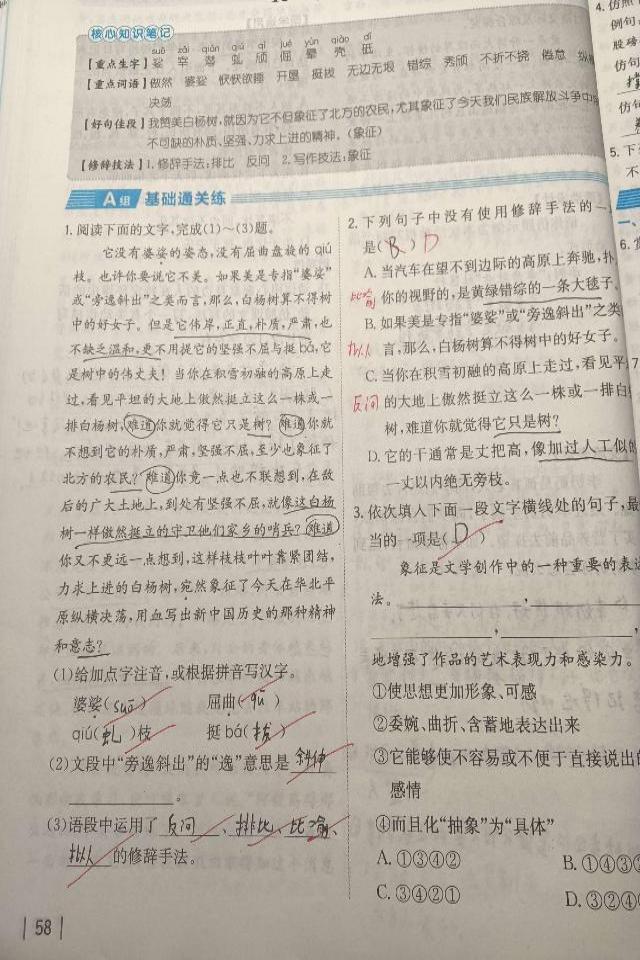 核心知识笔记
suō zǎi qián qiú qū jué yùn qiào dǐ
【重点生字】娑 宰 潜 虬 屈 倔 晕 壳 砥
【重点词语】傲然 婆娑 恹恹欲睡 开垦 挺拔 无边无垠 错综 秀颀 不折不挠 倦怠
决荡
【好句佳段】我赞美白杨树,就因为它不但象征了北方的农民,尤其象征了今天我们民族解放斗争中
不可缺的朴质、坚强、力求上进的精神。(象征)
【修辞技法】1.修辞手法:排比 反问 2.写作技法:象征
A组 基础通关练
1.阅读下面的文字,完成(1)~(3)题。
它没有婆娑的姿态,没有屈曲盘旋的 qiú
枝。也许你要说它不美。如果美是专指“婆娑”
或“旁逸斜出”之类而言,那么,白杨树算不得树
中的好女子。但是它伟岸,正直,朴质,严肃,也
不缺乏温和,更不用提它的坚强不屈与挺 bá,它
是树中的伟丈夫! 当你在积雪初融的高原上走
过,看见平坦的大地上傲然挺立这么一株或一
排白杨树,难道你就觉得它只是树? 难道你就
不想到它的朴质,严肃,坚强不屈,至少也象征了
北方的农民? 难道你竟一点也不联想到,在敌
后的广大土地上,到处有坚强不屈,就像这白杨
树一样傲然挺立的守卫他们家乡的哨兵? 难道
你又不更远一点想到,这样枝枝叶叶靠紧团结,
力求上进的白杨树,宛然象征了今天在华北平
原纵横决荡,用血写出新中国历史的那种精神
和意志?
(1)给加点字注音,或根据拼音写汉字。
婆娑(suō) 屈曲(qū)
qiú(虬)枝 挺 bá(拔)
(2)文段中“旁逸斜出”的“逸”意思是 斜伸
。
(3)语段中运用了 反问 、排比、比喻、
拟人 的修辞手法。
58
2.下列句子中没有使用修辞手法的一
是(B)D
A.当汽车在望不到边际的高原上奔驰,扑
比喻 你的视野的,是黄绿错综的一条大毯子。
B.如果美是专指“婆娑”或“旁逸斜出”之类
拟人 言,那么,白杨树算不得树中的好女子。
C.当你在积雪初融的高原上走过,看见平
反问 的大地上傲然挺立这么一株或一排白
树,难道你就觉得它只是树?
D.它的干通常是丈把高,像加过人工似的
一丈以内绝无旁枝。
3.依次填入下面一段文字横线处的句子,最
当的一项是(D)
象征是文学创作中的一种重要的表
法。 ,
, ,
地增强了作品的艺术表现力和感染力。
①使思想更加形象、可感
②委婉、曲折、含蓄地表达出来
③它能够使不容易或不便于直接说出
感情
④而且化“抽象”为“具体”
A.①③④② B.①④③
C.③④②① D.③②④
4.仿照
例句
股磅
仿句
仿句
5.下
不
一、
6.
7